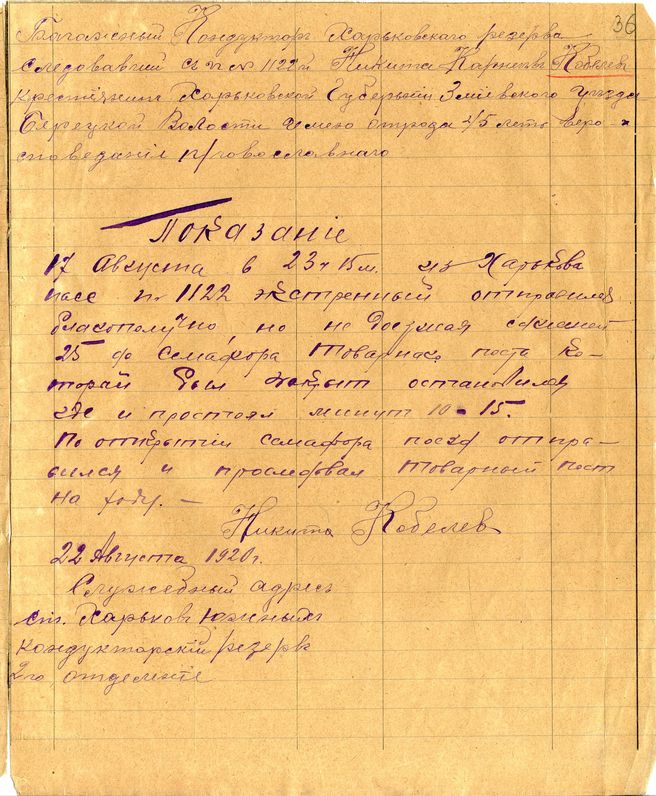 36
Багажный Кондукторъ Харьковскаго резерва
следовавший съ п № 1122й Никита Карпевъ Кобелев
крестіянинъ Харьковской Губерніи Зміевского уезда
Берецкой Волости имею отрода 45 летъ Веро-
споведаніе православнаго
Показаніе
17 Августа в 23ч 15м. из Харькова
пасс № 1122 экстренный отправился
благополучно, но не доезжая сажаней
25 до семафора товарнаго поста ко-
торай был закрыт остановился
где и простоял минут 10-15.
По открытии семафора поезд отпра-
вился и проследовал товарный пост
на ходу. —
Никита Кобелев
22 Августа 1920г.
Служебный адресъ
ст. Харьковъ Южныхъ
кондукторскій резервъ
2го отделеніе